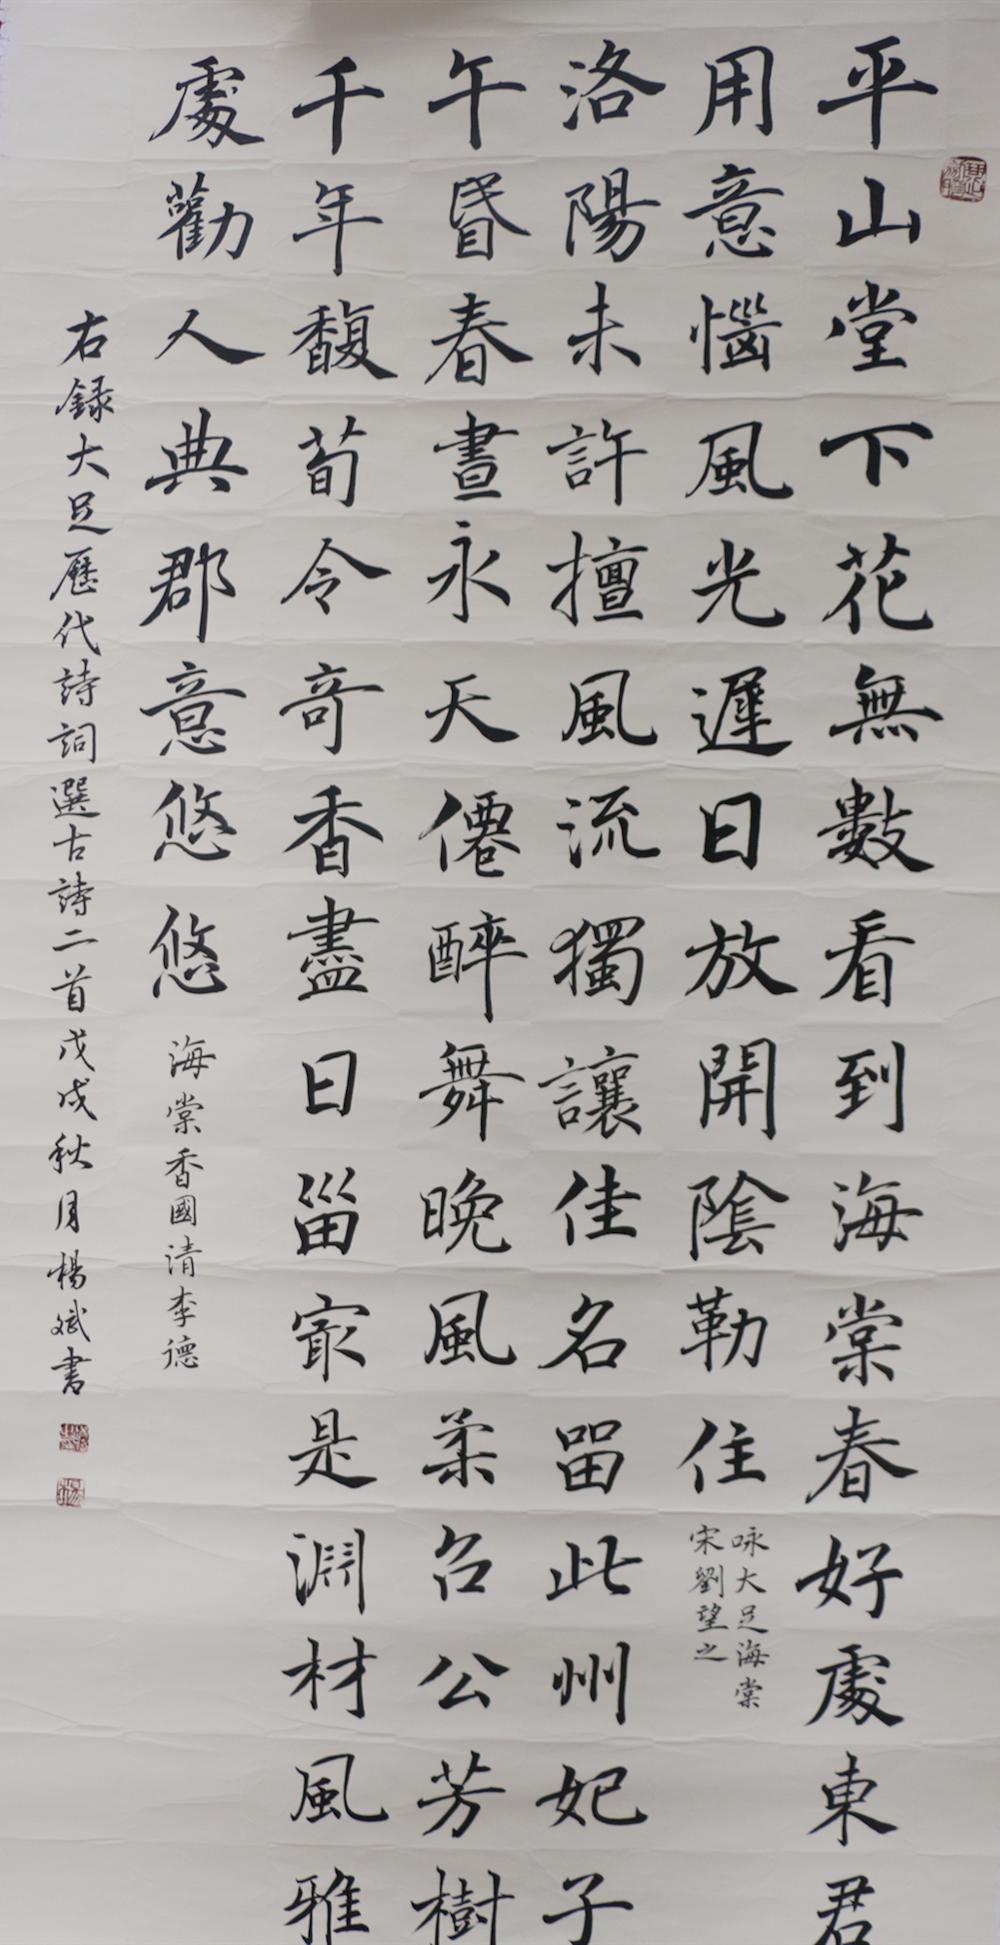 平山堂下花無數看到海棠春好處東君
用意惱風光遲日放開陰勒住
咏大足海棠
宋劉望之
洛陽未許擅風流獨讓佳名留此州妃子
午昏春晝永天僊醉舞晚風柔召公芳樹
千年馥荀令奇香盡日留最是淵材風雅
處勸人典郡意悠悠
海棠香國清李德
右録大足歷代詩詞選古詩二首戊戌秋月楊斌書